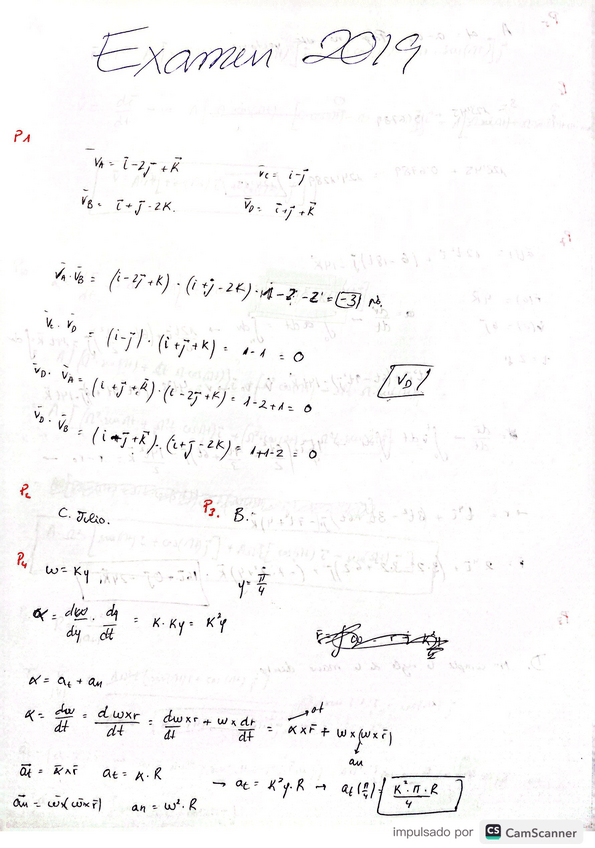 Examen 2019
P1
v̄A = ī-2j̄+k̄
v̄c = i-j̄
v̄B = ī+j̄-2k.
v̄D = ī+j̄+k̄
v̄A·v̄B = (i-2j̄+k)·(i+j̄-2k) = 1-2-2 = -3 no.
v̄c·v̄D = (i-j̄)·(i+j̄+k) = 1-1 = 0
v̄D·v̄A = (i+j+k̄)·(i-2j+k) = 1-2+1 = 0
VD
v̄D·v̄B = (i+j+k̄)·(i+j-2k) = 1+1-2 = 0
P2
C. Julio.
P3. B.
P4
ω = Ky
y = π/4
α = dω/dy · dy/dt = K·Ky = K²y
α = at + an
α = dω/dt = dωxr/dt = dωxr/dt + ωx dr/dt = αxr̄ + ωx(ωxr̄)
at
an
āt = ᾱxr̄ at = α·R → at = K²y·R → at(π/4) = K²·π·R/4
ān = ω̄x(ω̄xr̄) an = ω²·R
impulsado por CS CamScanner